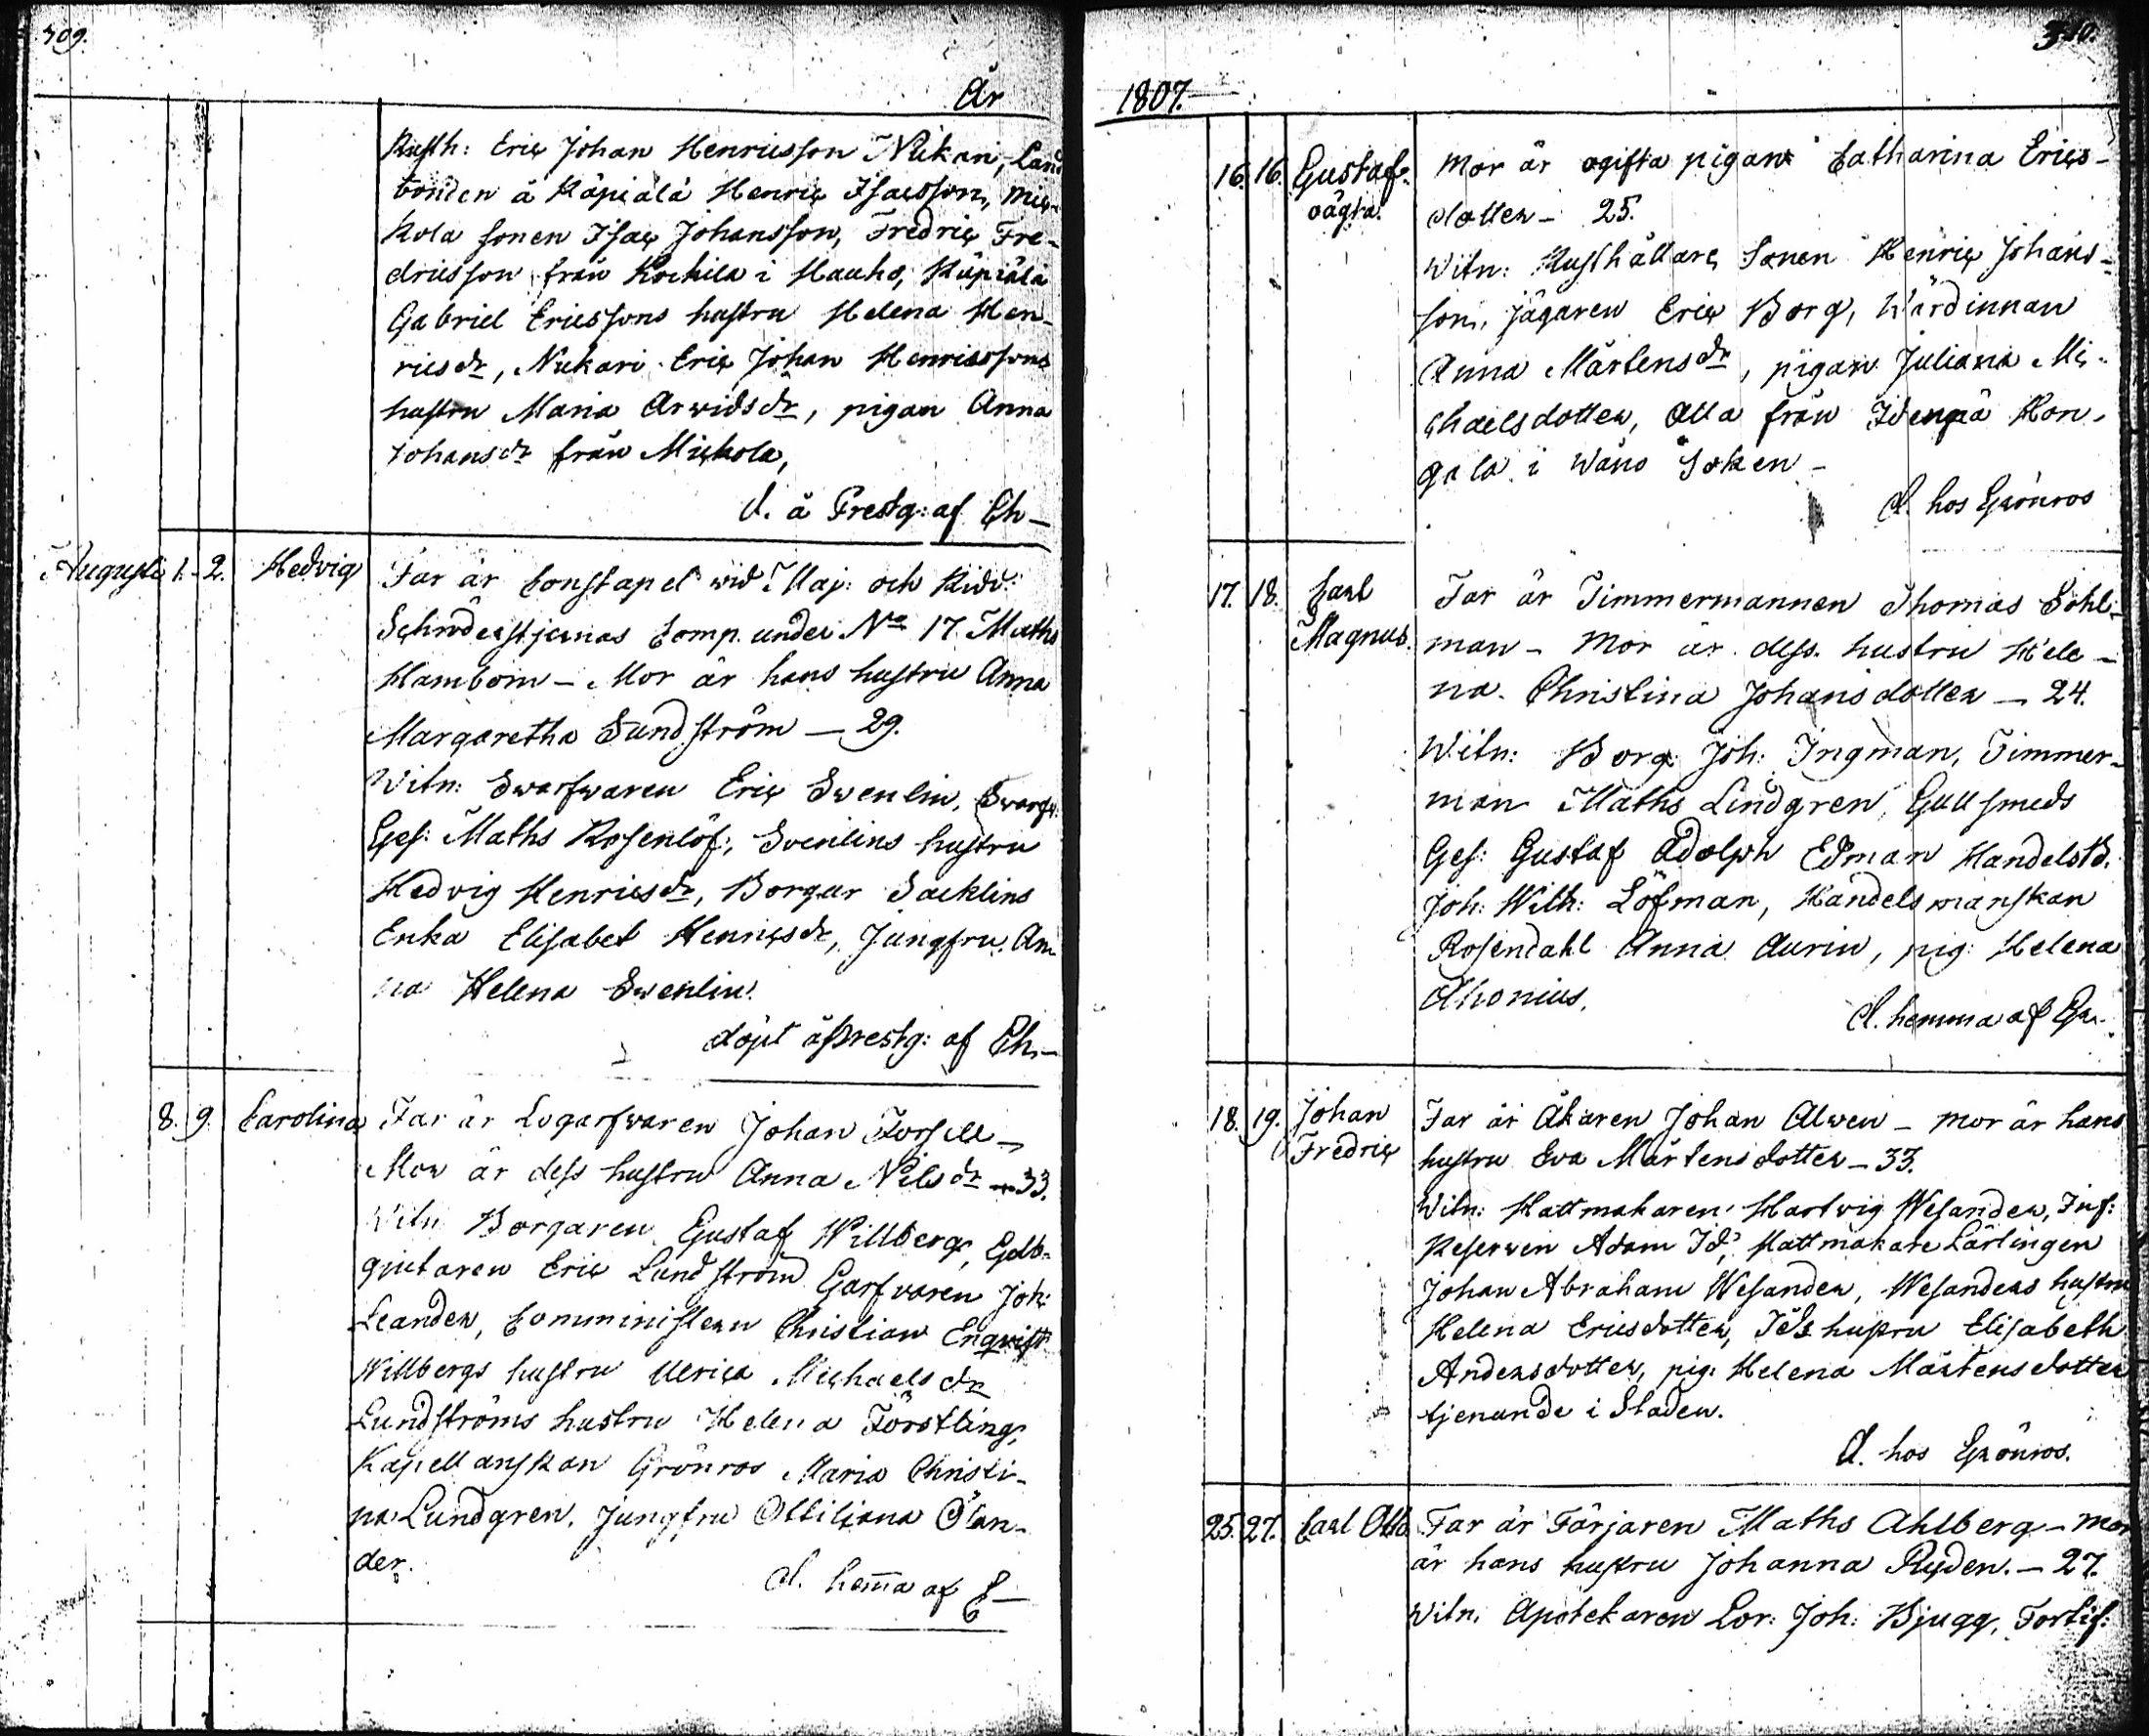 309.
År
Rusth: Eric Johan Henricsson Nukari, Land
bonden å Käpiälä Henric Isacsson, Mic-
kola sonen Isac Johansson, Fredric Fre-
dricsson från Kockila i Hauho, Käpiälä
Gabriel Ericssons hustru Helena Hen-
ricsdr, Nukari Eric Johan Henricssons
hustru Maria Arwidsdr, pigan Anna
Johansdr från Mickola,
d. å Prestg: af Ch-
Augusti 1. 2. Hedvig Far är Constapel wid Maj: och Ridd:
Schröderstjernas Comp. under No 17 Maths
Hamborn - Mor är hans hustru Anna
Margaretha Sundström - 29.
Witn: Swarfwaren Eric Swenlin, Swarfv:
Ges: Maths Rosenlöf, Svenlins hustru
Hedvig Henricsdr, Borgar Sacklins
Enka Elisabet Henricsdr, Jungfru An-
na Helena Swenlin.
döpt å Prestg: af Ch.-
8. 9. Carolina Far är Logarfwaren Johan Forsell -
Mor är dess hustru Anna Nilsdr - 33.
Witn Borgaren Gustaf Willberg, Gelb-
gjutaren Eric Lundström Garfvaren Joh:
Leander, Comministern Christian Enqvist
Willbergs hustru Ulrica Michaelsdr
Lundströms hustru Helena Förstling,
Kapellanskan Grönros Maria Christi-
na Lundgren, Jungfru Ottiliana Ölan-
der.
d. hema af E-
310.
1807.
16. 16. Gustaf oägta. Mor är ogifta pigan Catharina Erics-
dotter - 25.
Witn: Rusthållare Sonen Henric Johans-
son, Jägaren Eric Borg, Wärdinnan
Anna Mårtensdr, pigan Juliana Mi-
chaelsdotter, alla från Idenpä Kon-
gala i Wånå Soken -
d. hos Grönros
17. 18. Carl Magnus. Far är Timmermannen Thomas Sohl-
man - Mor är dess hustru Hele-
na Christina Johansdotter - 24.
Witn: Borg: Joh: Ingman, Timmer-
man Maths Lindgren, Gullsmeds
Ges: Gustaf Adolph Edman Handelsb.
Joh: Wilh: Löfman, Handelsmanskan
Rosendahl Anna Aurin, pig: Helena
Ahonius,
d. hemma af Gr.
18. 19. Johan Fredric Far är Åkaren Johan Alwen - Mor är hans
hustru Eva Mårtensdotter - 33.
Witn: Hattmakaren Hartvig Wesander, Inf:
Reserven Adam Id, Hattmakare Lärlingen
Johan Abraham Wesander, Wesanders hustru
Helena Ericsdotter, Ids hustru Elisabeth
Andersdotter, pig: Helena Mårtensdotter
tjenande i Staden.
d. hos Grönros.
25. 27. Carl Otto Far är Färjaren Maths Ahlberg - Mor
är hans hustru Johanna Ryden. - 27.
Witn. Apotekaren Lor: Joh: Bjugg, Fortif: